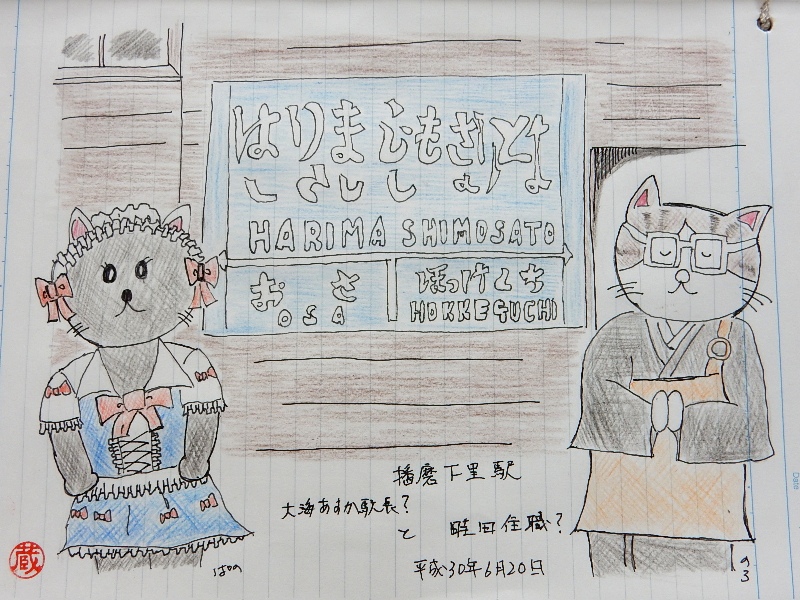 はりましもさとよ
HARIMA SHIMOSATO
おさ
ほっけぐち
OSA
HOKKEGUCHI
播磨下里駅
大海あすか駅長?
と
畦田住職?
平成30年6月20日
ぱの
の3
蔵
Date